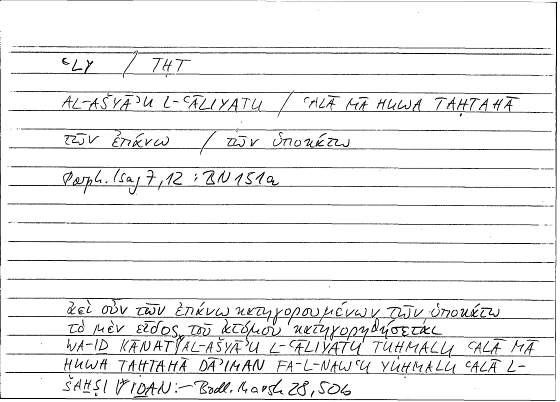 ʿLY / TḤT
AL-AŠYĀʾU L-ʿĀLIYATU / ʿALĀ MĀ HUWA TAḤTAHĀ
τῶν ἐπάνω / τῶν ὑποκάτω
Porph. Isag 7,12 : BN 151a
ἀεὶ οὖν τῶν ἐπάνω κατηγορουμένων τῶν ὑποκάτω
τὸ μὲν εἶδος τοῦ ἀτόμου κατηγορηθήσεται
WA-ID KĀNAT AL-AŠYĀʾU L-ʿĀLIYATU TUḤMALU ʿALĀ MĀ
HUWA TAḤTAHĀ DĀʾIMAN FA-L-NAWʿU YUḤMALU ʿALĀ L-
ŠAḪṢI :– Bodl. Marsh 28, 50b